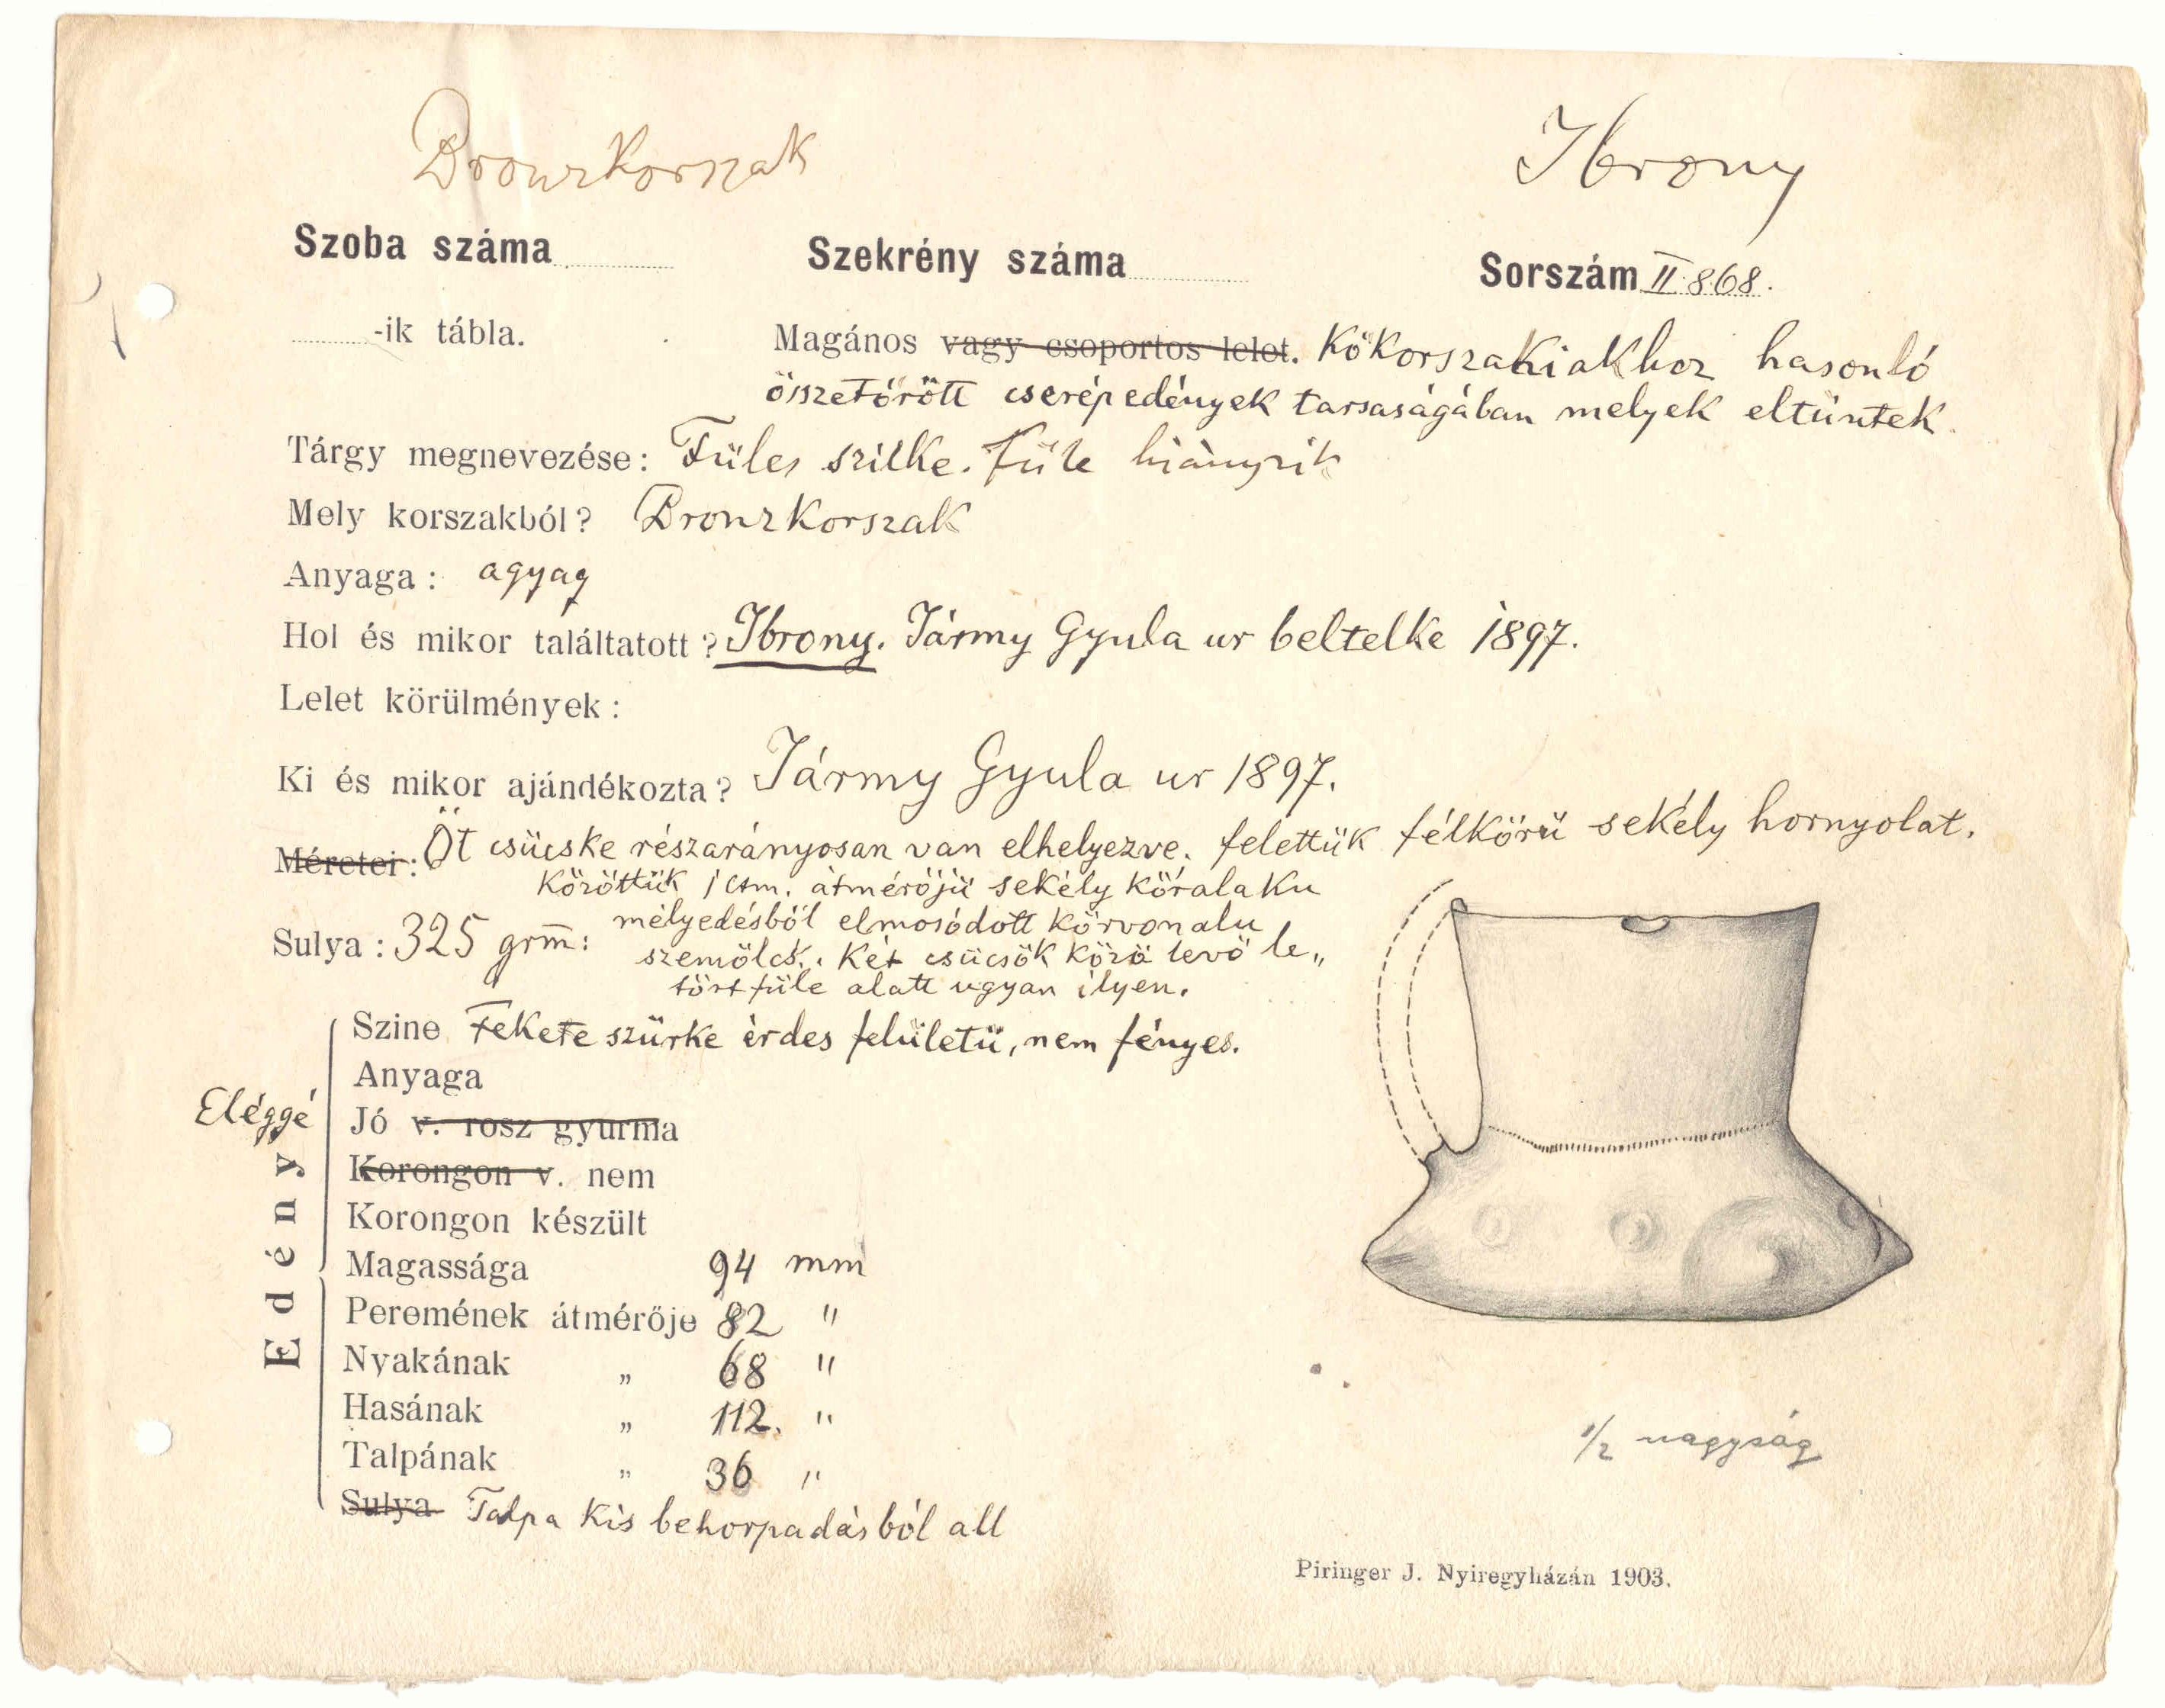 Bronzkorszak
Ibrony
Szoba száma
Szekrény száma
Sorszám II.868.
-ik tábla.
Magános vagy csoportos lelet. Kőkorszakiakhoz hasonló
összetörött cserépedények tarsaságában melyek eltüntek.
Tárgy megnevezése: Füles szilke. Füle hiányzik
Mely korszakból? Bronzkorszak
Anyaga: agyag
Hol és mikor találtatott? Ibrony. Jármy Gyula ur beltelke 1897.
Lelet körülmények:
Ki és mikor ajándékozta? Jármy Gyula ur 1897.
Méretei: Öt csücske részarányosan van elhelyezve. felettük félkörü sekély hornyolat.
Közöttük 1 ctm. átméröjü sekély köralaku
mélyedésböl elmosódott körvonalu
Sulya: 325 grm: szemölcs. Két csücsök közü levö le„
tört füle alatt ugyan ilyen.
Szine Fekete szürke érdes felületü, nem fényes.
Anyaga
Eléggé Jó v. rosz gyurma
Korongon v. nem
Korongon készült
Edény
Magassága 94 mm
Peremének átmérője 82 "
Nyakának „ 68 "
Hasának „ 112. "
Talpának „ 36 "
Sulya Talpa kis behorpadásból all
1/2 nagyság
Piringer J. Nyiregyházán 1903.